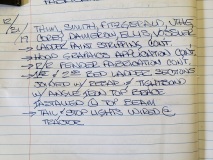 12/21/17 THIN, SMITH, FITZGERALD,
COREY, DAMERON, ELLIS, VISSER
→ LADDER PAINT STRIPPING CONT.
→ HOOD GRAPHICS APPLICATION CONT.
→ R/R FENDER FABRICATION CONT.
→ 1ST & 2ND BED LADDER SECTIONS
JOINED W/ REBAR & TIGHTBOND
W/ ANGLE IRON TOP BRACE
INSTALLED @ TOP BEAM
→ TAIL & STOP LIGHTS WIRED @
TRACTOR